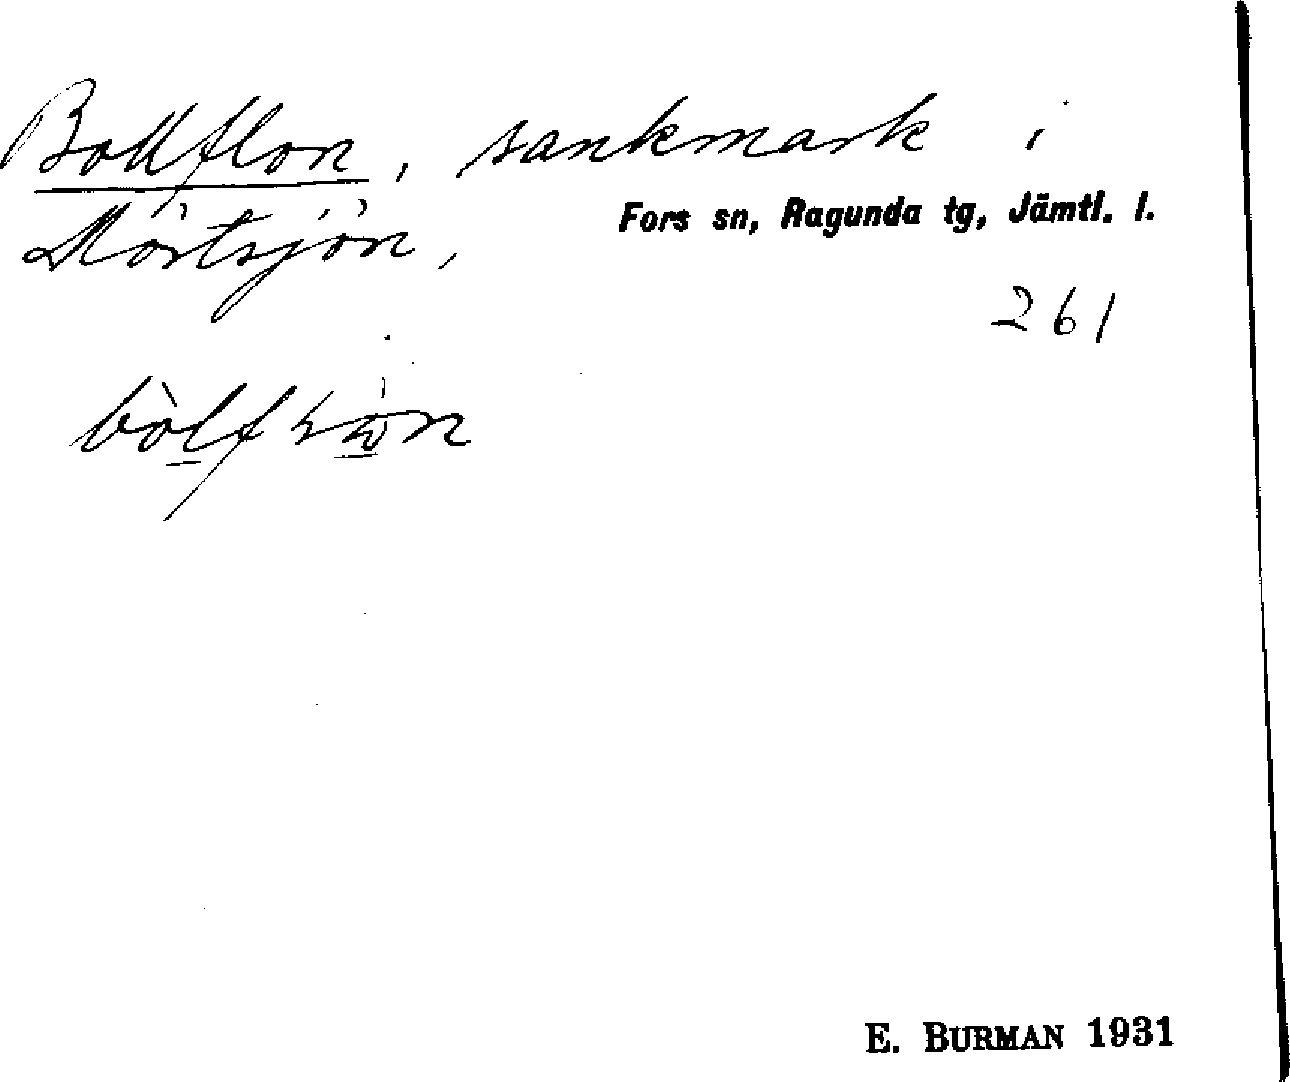 Bollflon, sankmark i
Mörtsjön,
Fors sn, Ragunda tg, Jämtl. l.
261
E. BURMAN 1931